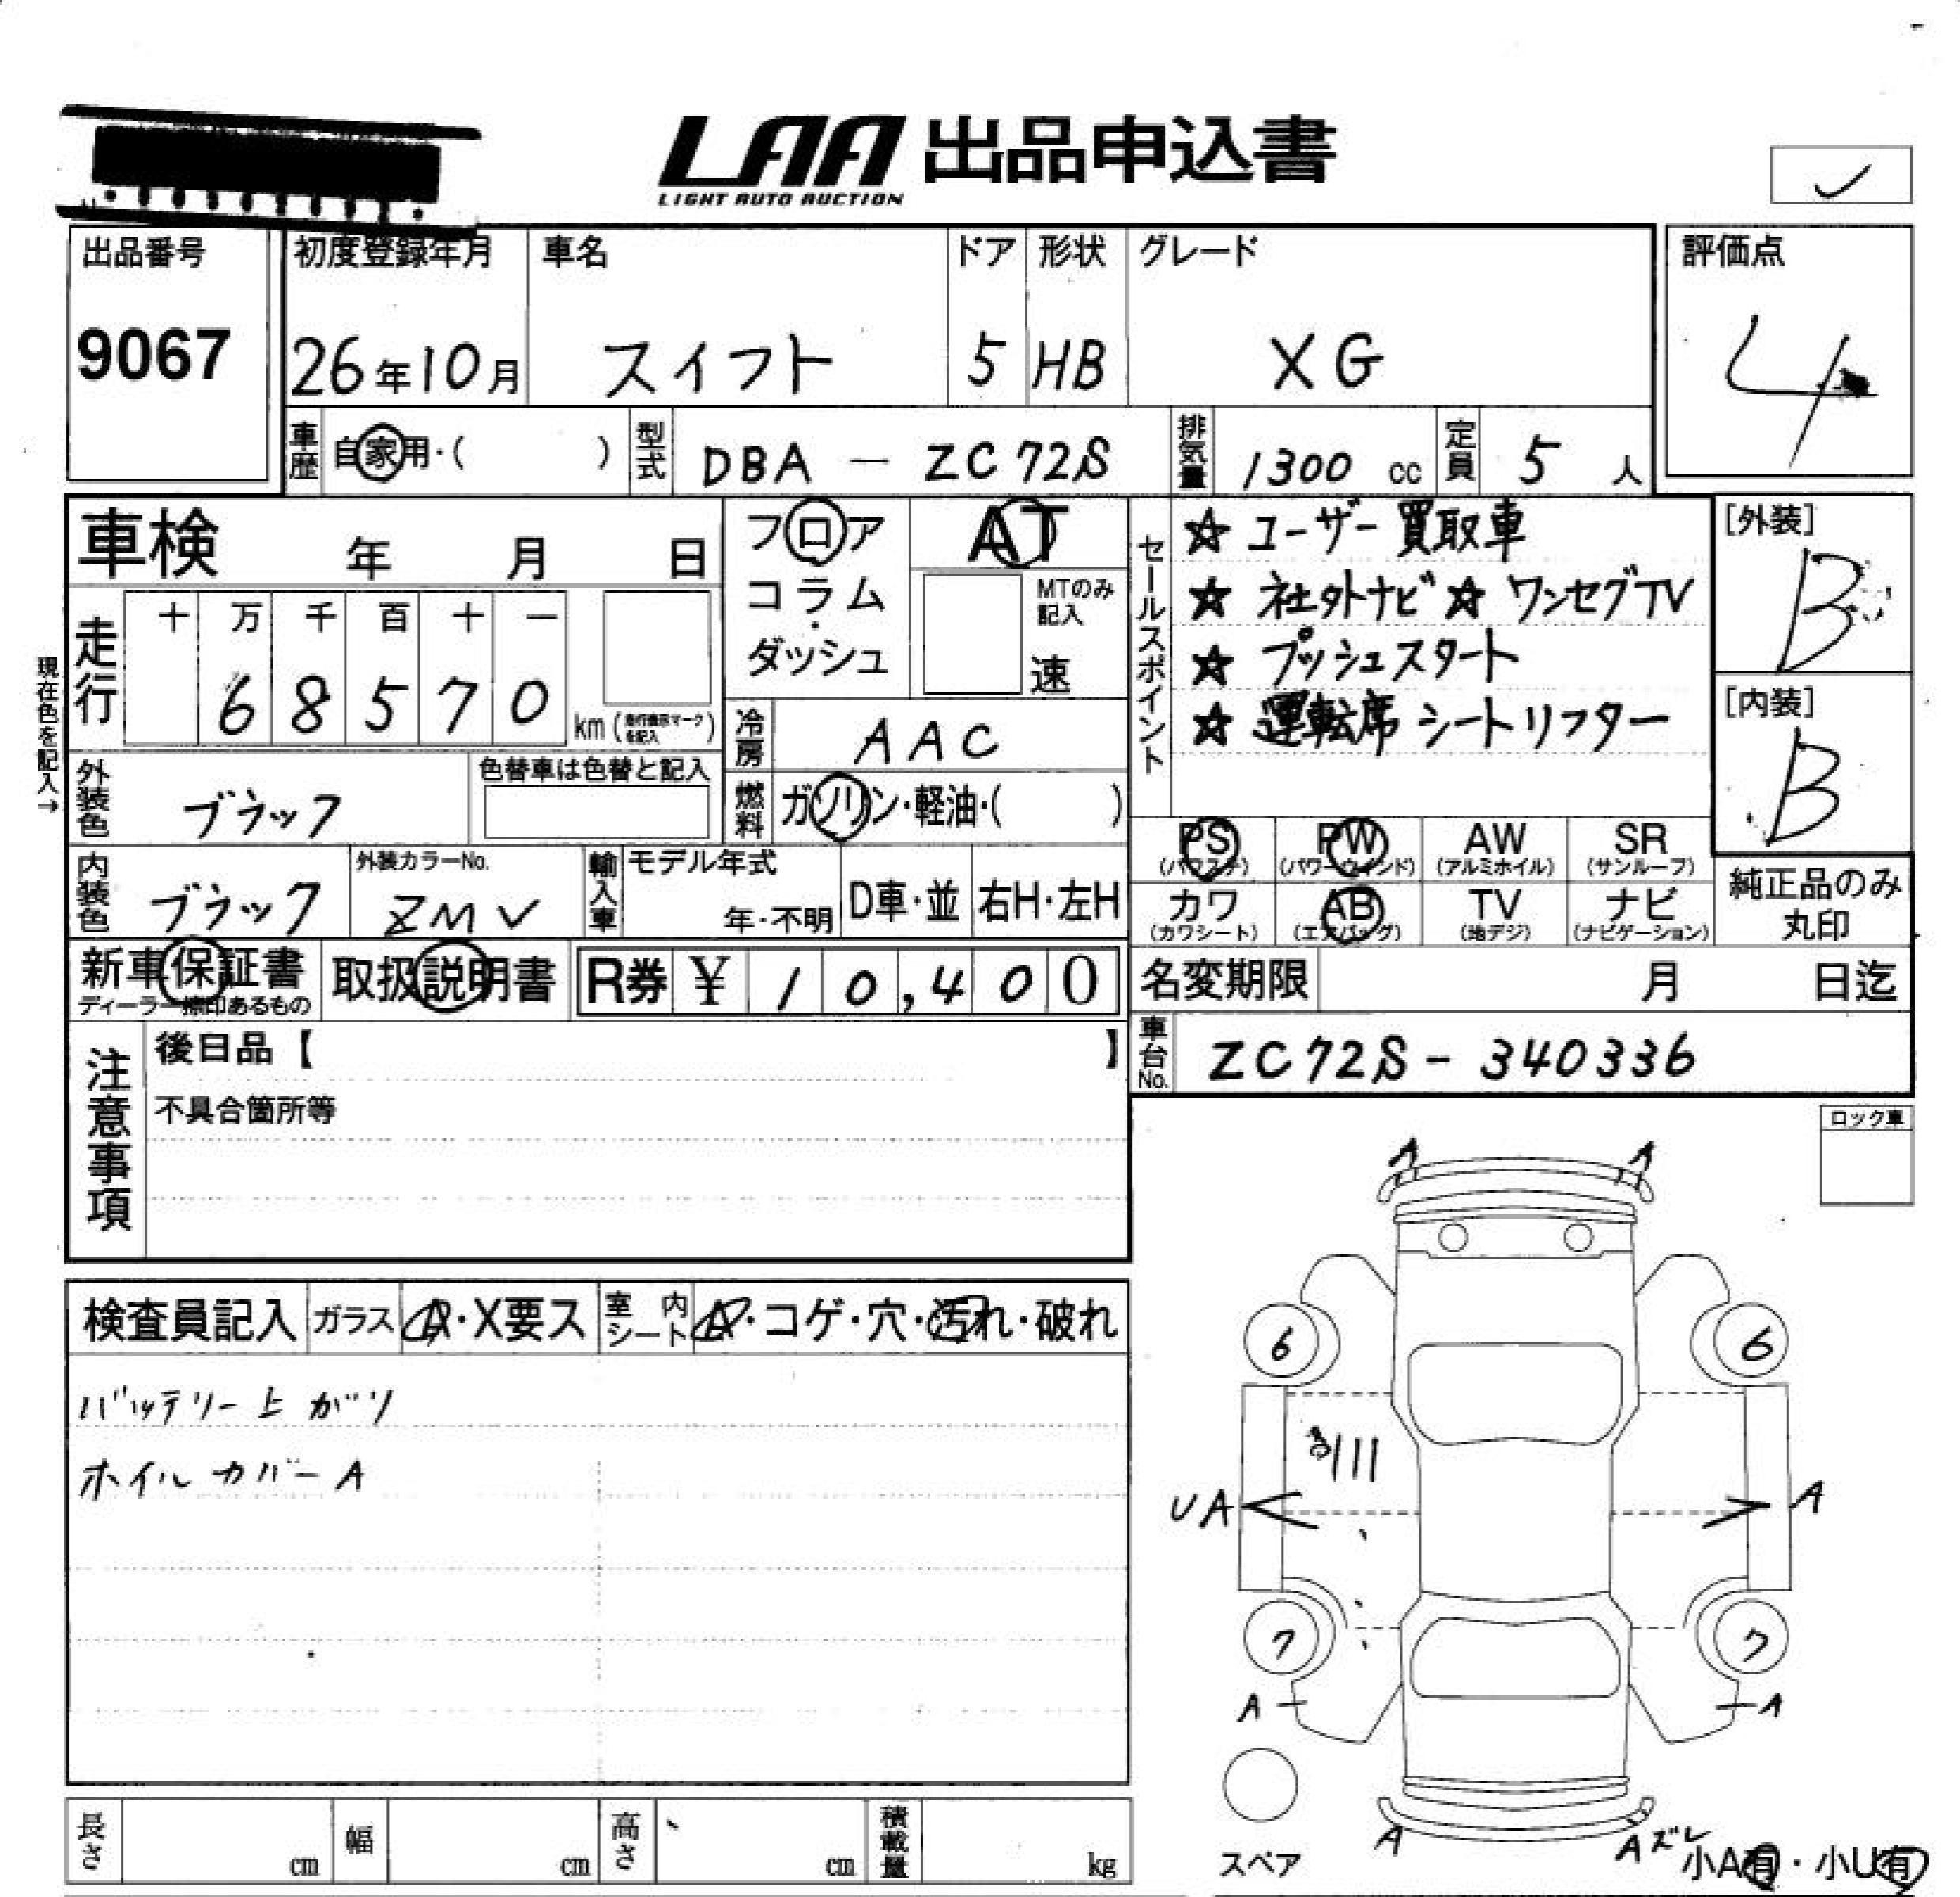 LAA 出品申込書
LIGHT AUTO AUCTION
出品番号
9067
初度登録年月
26年10月
車名
スイフト
ドア
5
形状
HB
グレード
XG
評価点
4
車歴 自家用・( )
型式 DBA - ZC72S
排気量 1300 cc
定員 5 人
車検 年 月 日
フロア
コラム・
ダッシュ
AT
MTのみ
記入
速
セールスポイント
☆ ユーザー買取車
☆ 社外ナビ ☆ ワンセグTV
☆ プッシュスタート
☆ 運転席シートリフター
[外装]
B
[内装]
B
現在色を記入→
走行
十 万 千 百 十 一
6 8 5 7 0
km (走行機示マークを記入)
冷房 AAC
燃料 ガソリン・軽油・( )
外装色 ブラック
色替車は色替と記入
内装色 ブラック
外装カラーNo.
ZMV
輸入車 モデル年式
年・不明
D車・並
右H・左H
PS
(パワステ)
PW
(パワーウィンド)
AW
(アルミホイル)
SR
(サンルーフ)
カワ
(カワシート)
AB
(エアバッグ)
TV
(地デジ)
ナビ
(ナビゲーション)
純正品のみ
丸印
新車保証書
ディーラー捺印あるもの
取扱説明書
R券 ¥ 10,400
名変期限 月 日迄
車台No. ZC72S - 340336
注意事項
後日品【 】
不具合箇所等
ロック車
検査員記入 ガラス A・X要ス 室内シート A・コゲ・穴・汚れ・破れ
バッテリー上がり
ホイルカバーA
A A
6 6
UA A
7 7
A A
スペア
A Aズレ
小A有・小U有
長さ cm
幅 cm
高さ cm
積載量 kg